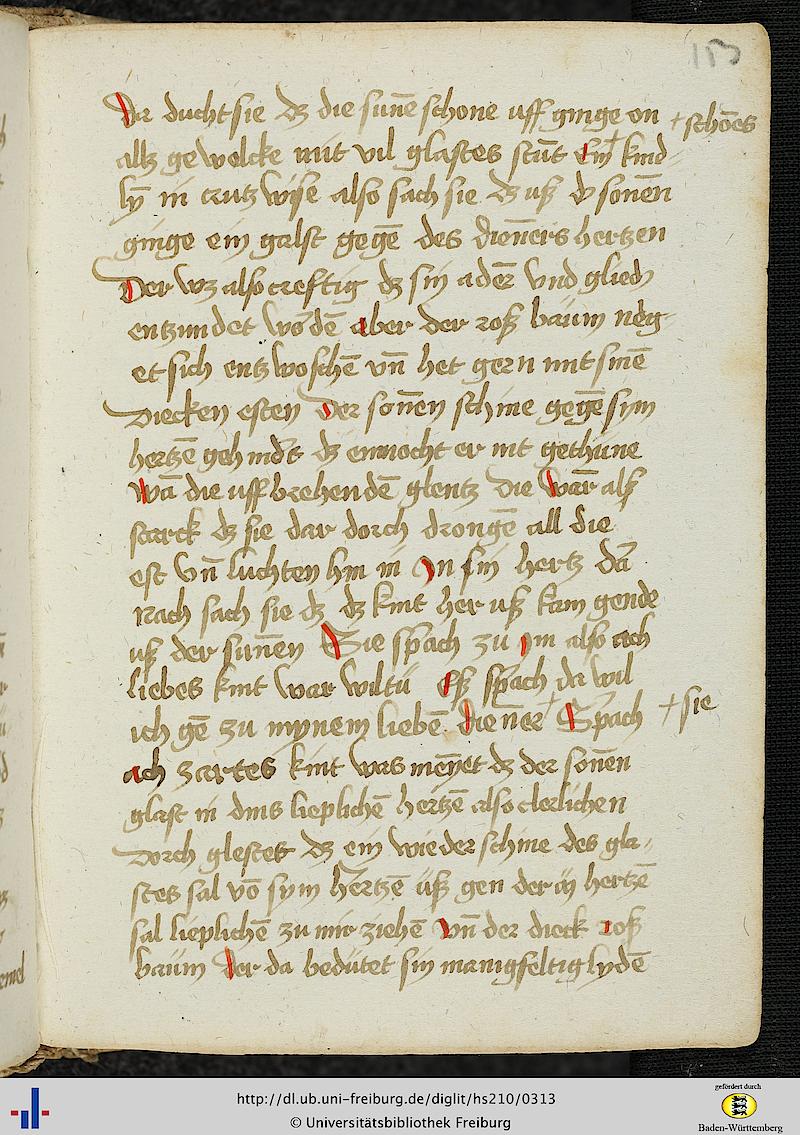 153
Da ducht sie dz die sunē schone uff ginge on
+ schōēs
allz gewolcke mit vil glastes stūt Ein + kind-
lȳ in crutz wise also sach sie dz uß d sonēn
ginge ein galst gegē des dionērs hertzen
Der wz also creftig dz sin adēr vnd glied
entzundet wodē aber der roß baum neig-
et sich entzwoschē vn̄ het gern mit sinē
diecken esten Der sonēn schine gegē sym
hertzē gehindt dz enmocht er nit gethūne
Wā die uff brehendē glentz die warr alß
starck dz sie dar dorch drongē all die
est vn̄ luchten hin in In sin hertz Da
nach sach sie dz dz kint her uß kam gende
uß der sunēn Sie sprach zu Im also ach
liebes kint war wiltū Eß sprach da wil
ich gē zu mynem liebē dienēr + Sprach
+ sie
ach zartes kint was menȳet dz der sonēn
glast in dins lieplichē hertzē also clerlichen
dorch glestet dz ein wieder schine des gla-
stes sal vō sym hertzē ūß gen der in hertzē
sal lieplichē zu mir ziehē vn̄ der dieck roß
baūm der da bedūtet sin manigfeltig lydē
http://dl.ub.uni-freiburg.de/diglit/hs210/0313
© Universitätsbibliothek Freiburg
gefördert durch
Baden-Württemberg